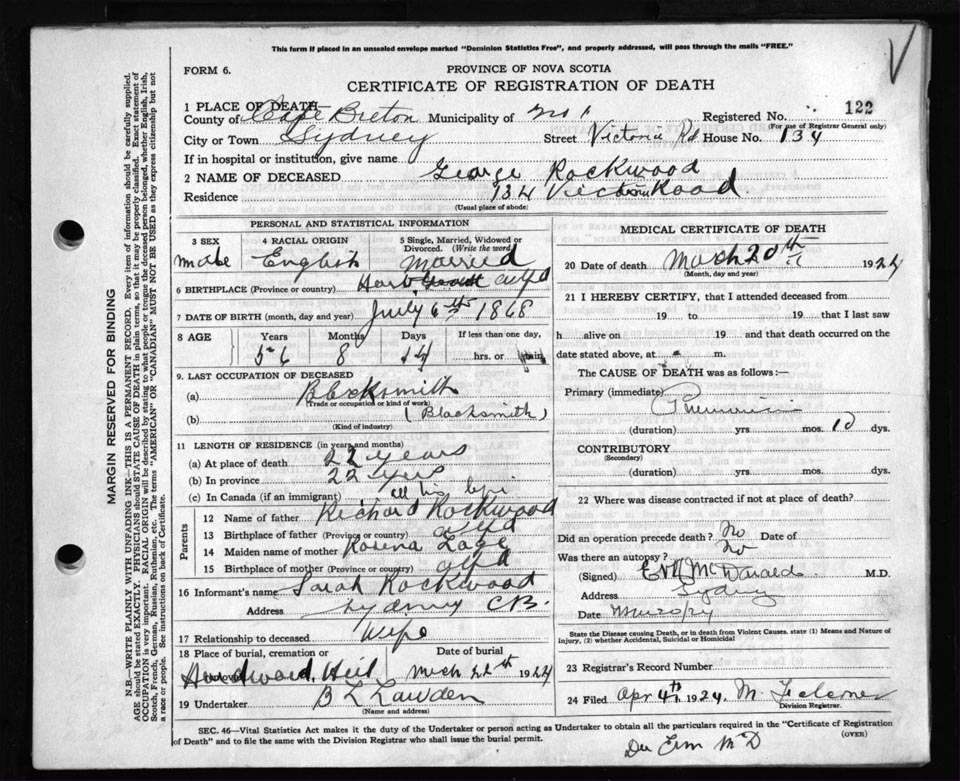 This form if placed in an unsealed envelope marked "Dominion Statistics Free", and properly addressed, will pass through the mails "FREE."
FORM 6.
PROVINCE OF NOVA SCOTIA
CERTIFICATE OF REGISTRATION OF DEATH
1 PLACE OF DEATH
County of Cape Breton Municipality of Registered No. 122
(For use of Registrar General only)
City or Town Sydney Street Victoria Rd House No. 134
If in hospital or institution, give name
2 NAME OF DECEASED George Rockwood
Residence 134 Victoria Road
(Usual place of abode)
PERSONAL AND STATISTICAL INFORMATION
3 SEX
male
4 RACIAL ORIGIN
English
5 Single, Married, Widowed or Divorced. (Write the word)
Married
6 BIRTHPLACE (Province or country)
7 DATE OF BIRTH (month, day and year) July 6th 1868
8 AGE Years Months Days If less than one day,
56 8 14 hrs. or min
9. LAST OCCUPATION OF DECEASED
(a) Blacksmith
(Trade or occupation or kind of work)
(b) (Blacksmith)
(Kind of industry)
11 LENGTH OF RESIDENCE (in years and months)
(a) At place of death 22 years
(b) In province 22 yrs
(c) In Canada (if an immigrant) all his
Parents
12 Name of father Richard Rockwood
13 Birthplace of father (Province or country)
14 Maiden name of mother Rosena
15 Birthplace of mother (Province or country)
16 Informant's name Sarah Rockwood
Address Sydney C.B.
17 Relationship to deceased wife
18 Place of burial, cremation or
Date of burial
Hardwood Hill Mch 22th 1924
19 Undertaker
(Name and address)
MEDICAL CERTIFICATE OF DEATH
20 Date of death March 20th 1924
(Month, day and year)
21 I HEREBY CERTIFY, that I attended deceased from
19 to 19 that I last saw
h alive on 19 and that death occurred on the
date stated above, at m.
The CAUSE OF DEATH was as follows:—
Primary (immediate) Pneumonia
(duration) yrs. mos. 10 dys.
CONTRIBUTORY
(Secondary)
(duration) yrs. mos. dys.
22 Where was disease contracted if not at place of death?
Did an operation precede death? No Date of
Was there an autopsy? No
(Signed) McDonald M.D.
Address Sydney
Date
State the Disease causing Death, or in death from Violent Causes. state (1) Means and Nature of Injury, (2) whether Accidental, Suicidal or Homicidal
23 Registrar's Record Number
24 Filed Apr 4th 1924. M.
Division Registrar.
SEC. 46—Vital Statistics Act makes it the duty of the Undertaker or person acting as Undertaker to obtain all the particulars required in the "Certificate of Registration
of Death" and to file the same with the Division Registrar who shall issue the burial permit.
(OVER)
MARGIN RESERVED FOR BINDING
N.B.—WRITE PLAINLY WITH UNFADING INK—THIS IS A PERMANENT RECORD. Every item of information should be carefully supplied.
AGE should be stated EXACTLY. PHYSICIANS should STATE CAUSE OF DEATH in plain terms, so that it may be properly classified. Exact statement of
OCCUPATION is very important. RACIAL ORIGIN will be described by stating to what people or tongue the deceased person belonged, whether English, Irish,
Scotch, French, German, Russian, Ruthenian, etc. The terms "AMERICAN" or "CANADIAN" MUST NOT BE USED as they express citizenship but not
a race or people. See instructions on back of Certificate.